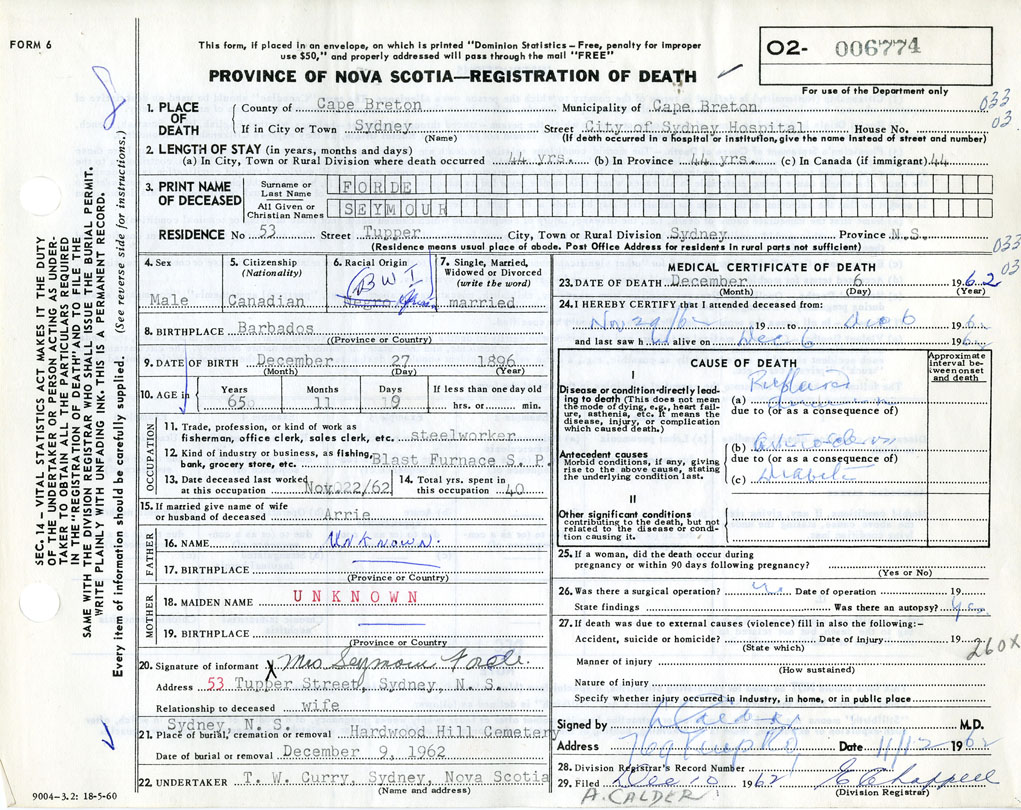 FORM 6
This form, if placed in an envelope, on which is printed "Dominion Statistics – Free, penalty for improper
use $50," and properly addressed will pass through the mail "FREE"
PROVINCE OF NOVA SCOTIA—REGISTRATION OF DEATH
O2- 006774
For use of the Department only
SEC. 14 – VITAL STATISTICS ACT MAKES IT THE DUTY
OF THE UNDERTAKER OR PERSON ACTING AS UNDER-
TAKER TO OBTAIN ALL THE PARTICULARS REQUIRED
IN THE "REGISTRATION OF DEATH" AND TO FILE THE
SAME WITH THE DIVISION REGISTRAR WHO SHALL ISSUE THE BURIAL PERMIT.
WRITE PLAINLY WITH UNFADING INK. THIS IS A PERMANENT RECORD.
Every item of information should be carefully supplied. (See reverse side for instructions.)
1. PLACE OF DEATH
County of Cape Breton Municipality of Cape Breton 033
If in City or Town Sydney Street City of Sydney Hospital House No. 03
(Name) (If death occurred in a hospital or institution, give the name instead of street and number)
2. LENGTH OF STAY (in years, months and days)
(a) In City, Town or Rural Division where death occurred 44 yrs. (b) In Province 44 yrs. (c) In Canada (if immigrant) 44
3. PRINT NAME OF DECEASED
Surname or Last Name FORDE
All Given or Christian Names SEYMOUR
RESIDENCE No 53 Street Tupper City, Town or Rural Division Sydney Province N.S.
(Residence means usual place of abode. Post Office Address for residents in rural parts not sufficient)
033
03
4. Sex
Male
5. Citizenship
(Nationality)
Canadian
6. Racial Origin
BWI
Negro
7. Single, Married,
Widowed or Divorced
(write the word)
married
8. BIRTHPLACE Barbados
(Province or Country)
9. DATE OF BIRTH December 27 1896
(Month) (Day) (Year)
10. AGE in
Years Months Days If less than one day old
65 11 19 hrs. or min.
OCCUPATION
11. Trade, profession, or kind of work as
fisherman, office clerk, sales clerk, etc. steelworker
12. Kind of industry or business, as fishing,
bank, grocery store, etc. Blast Furnace S. P.
13. Date deceased last worked
at this occupation Nov. 22/62
14. Total yrs. spent in
this occupation 40
15. If married give name of wife
or husband of deceased Arrie
FATHER
16. NAME Unknown.
17. BIRTHPLACE
(Province or Country)
MOTHER
18. MAIDEN NAME UNKNOWN
19. BIRTHPLACE
(Province or Country
20. Signature of informant X Mrs Seymour Forde.
Address 53 Tupper Street, Sydney, N. S.
Relationship to deceased wife
Sydney, N. S.
21. Place of burial, cremation or removal Hardwood Hill Cemetery
Date of burial or removal December 9, 1962
22. UNDERTAKER T. W. Curry, Sydney, Nova Scotia
(Name and address)
9004-3.2: 18-5-60
MEDICAL CERTIFICATE OF DEATH
23. DATE OF DEATH December 6 1962
(Month) (Day) (Year)
24. I HEREBY CERTIFY that I attended deceased from:
Nov 29/62 19 to Dec 6 196
and last saw h alive on Dec 6 196
CAUSE OF DEATH
Approximate
interval be-
tween onset
and death
I
Disease or condition directly lead-
ing to death (This does not mean
the mode of dying, e.g., heart fail-
ure, asthenia, etc. It means the
disease, injury, or complication
which caused death.)
(a)
due to (or as a consequence of)
Antecedent causes
Morbid conditions, if any, giving
rise to the above cause, stating
the underlying condition last.
(b)
due to (or as a consequence of)
(c)
II
Other significant conditions
contributing to the death, but not
related to the disease or condi-
tion causing it.
25. If a woman, did the death occur during
pregnancy or within 90 days following pregnancy?
(Yes or No)
26. Was there a surgical operation? Date of operation 19
State findings Was there an autopsy?
27. If death was due to external causes (violence) fill in also the following:-
Accident, suicide or homicide? Date of injury 19
(State which)
260X
Manner of injury
(How sustained)
Nature of injury
Specify whether injury occurred in industry, in home, or in public place
Signed by M.D.
Address Date 11/12 1962
28. Division Registrar's Record Number
29. Filed Dec 10 1962 Chappell
(Division Registrar)
A. CALDER